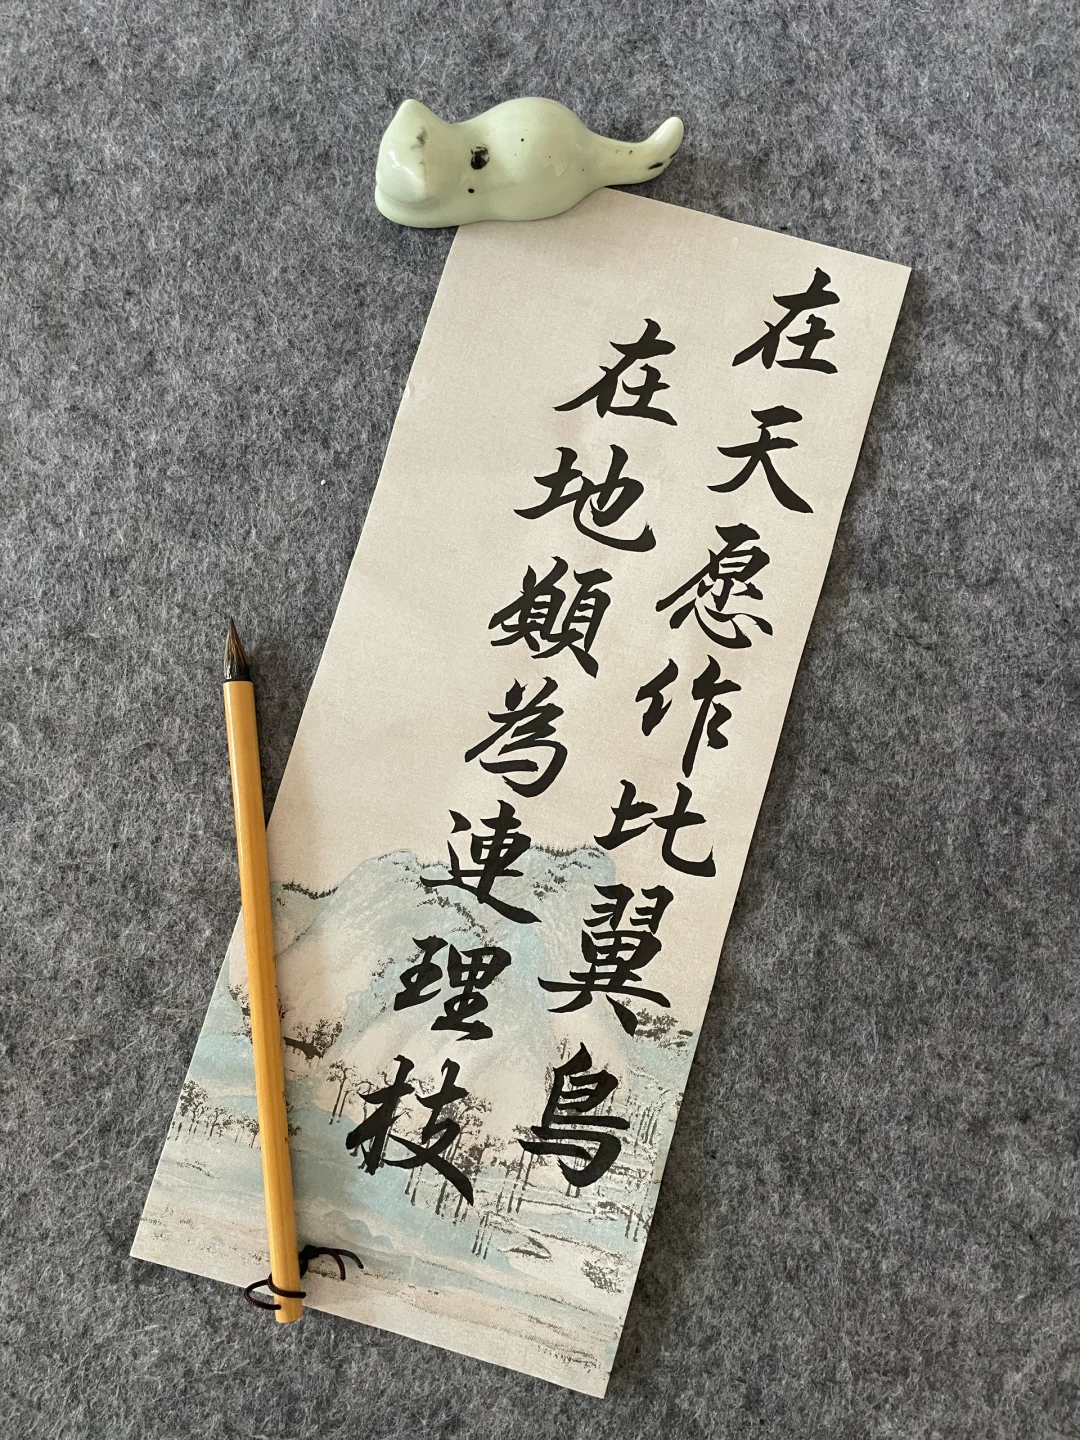 在天愿作比翼鳥
在地願為連理枝